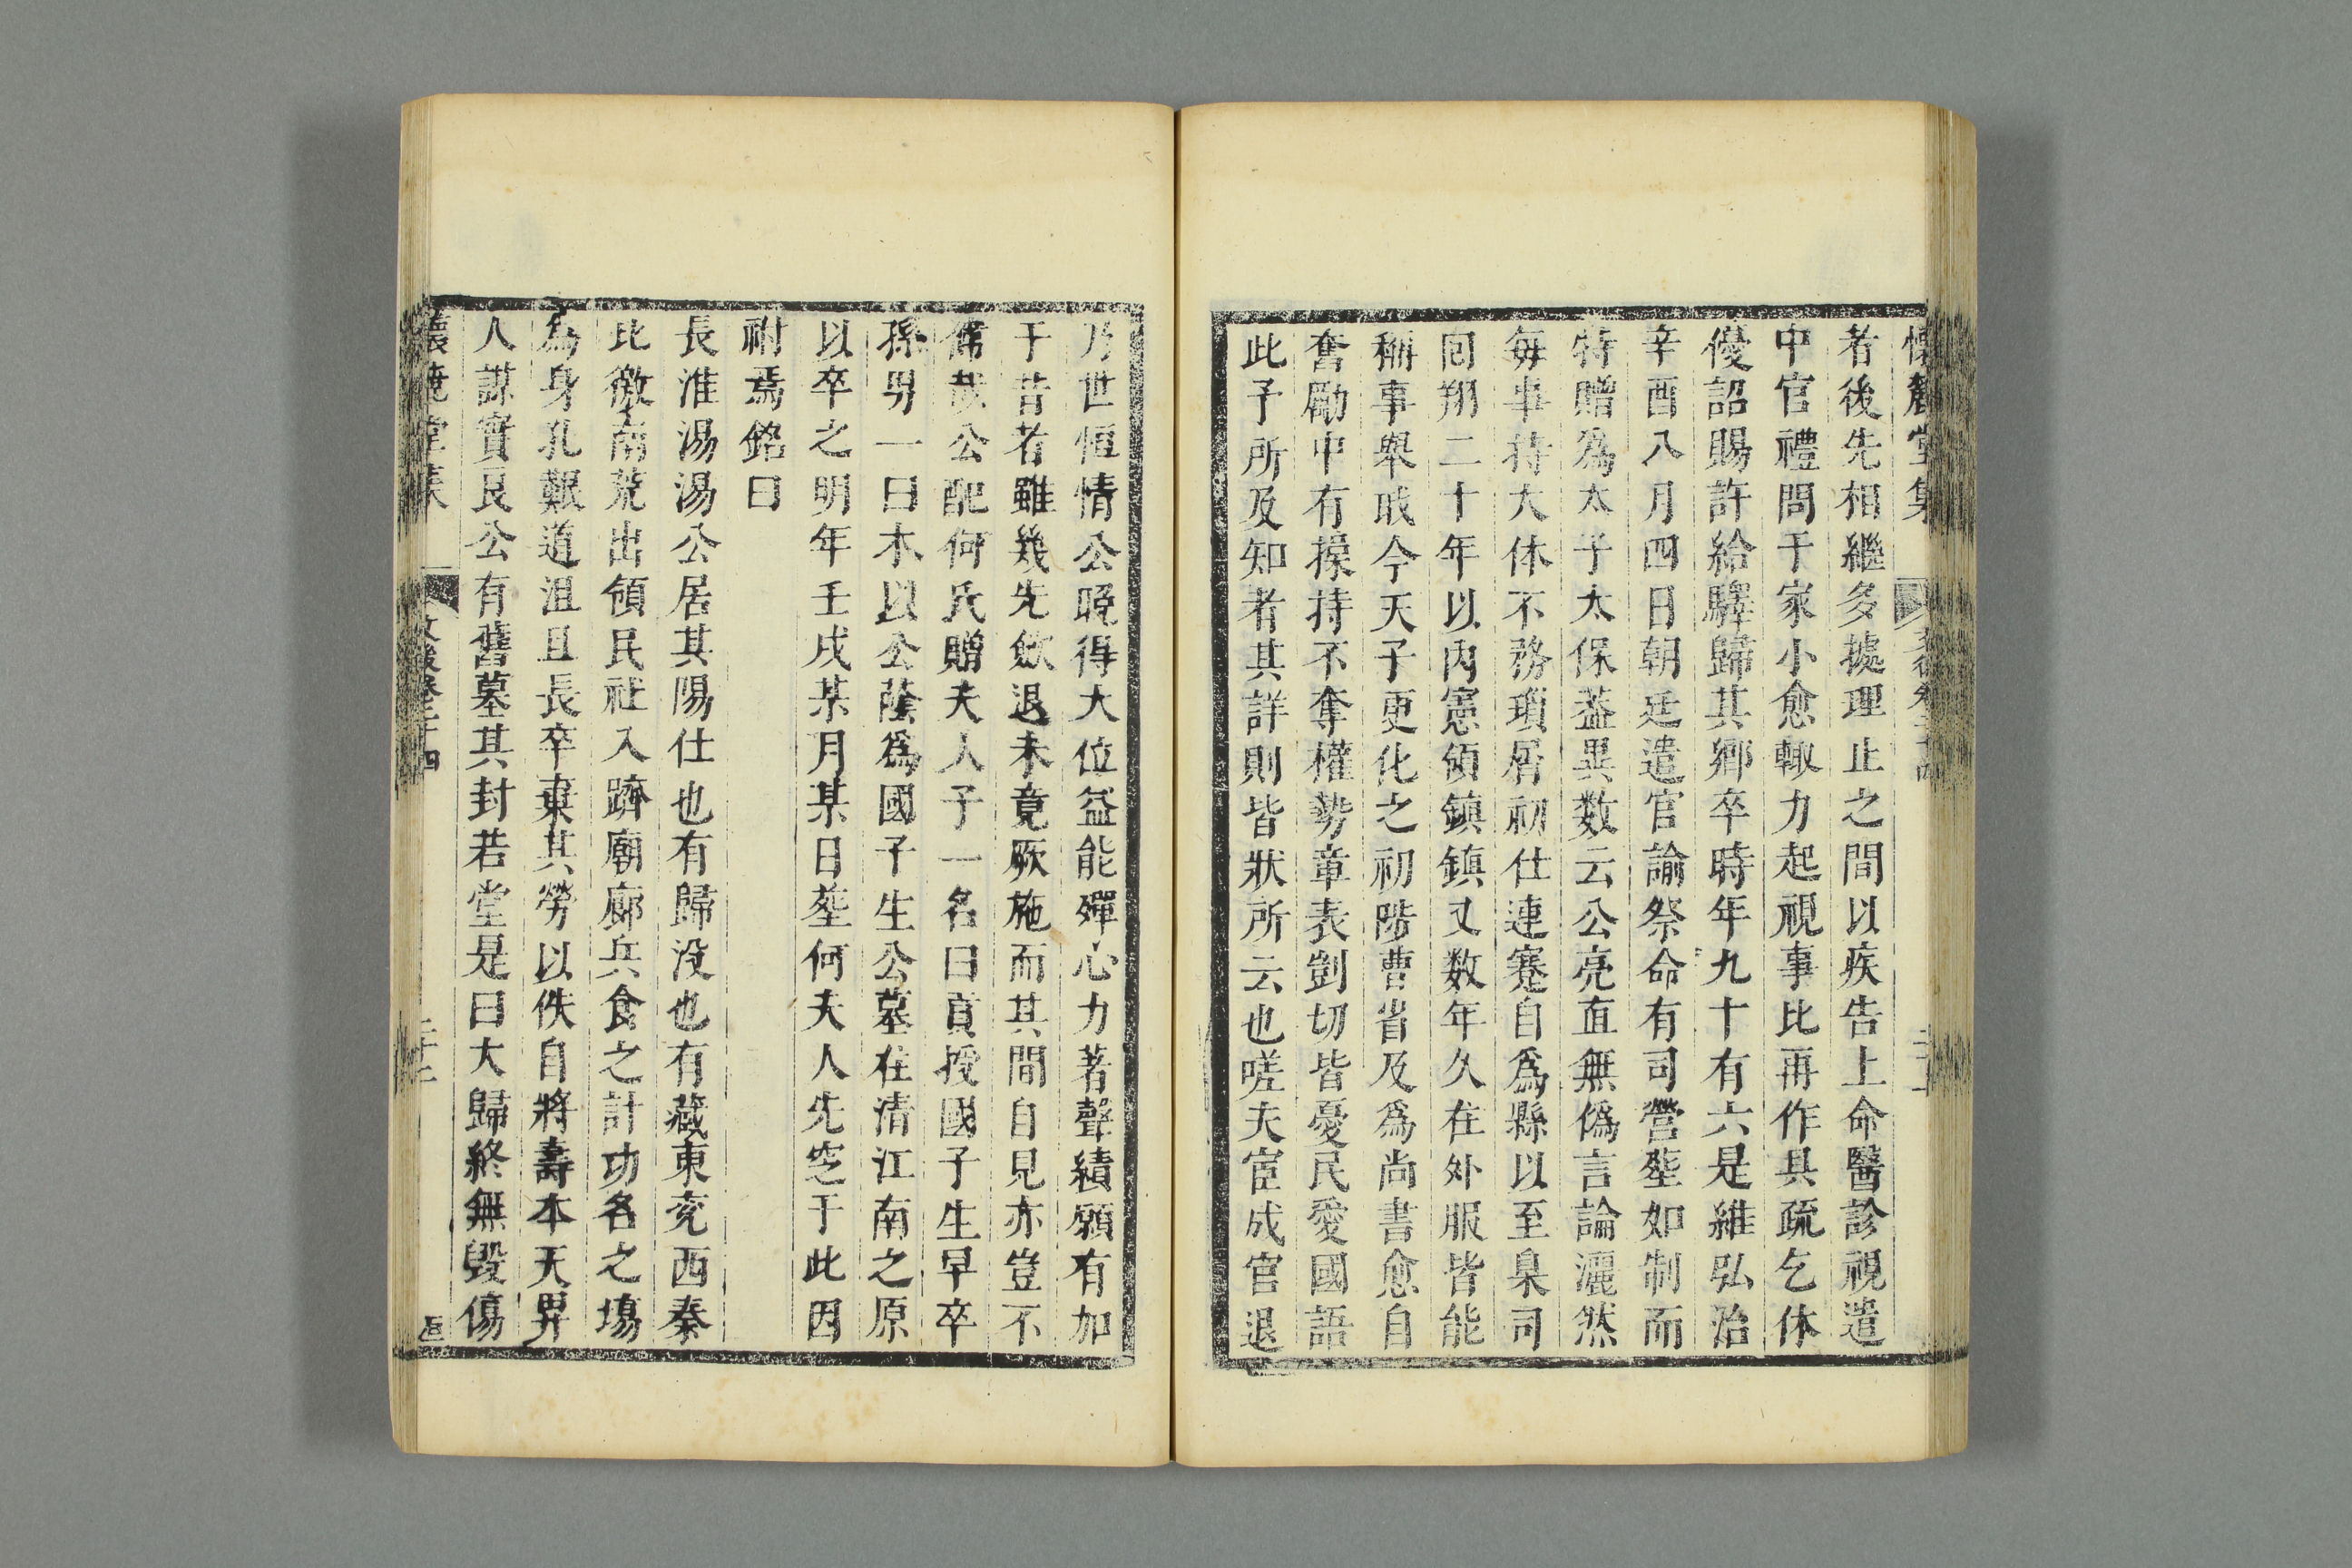 懷麓堂集
文後卷二十四
者後先相繼多據理止之間以疾告上命醫診視遣
中官禮問于家小愈輙力起視事比再作具疏乞休
優詔賜許給驛歸其鄉卒時年九十有六是維弘治
辛酉八月四日朝廷遣官諭祭命有司營塟如制而
特贈爲太子太保葢異数云公亮直無僞言論灑然
每事持大体不務瑣屑初仕連蹇自爲縣以至臬司
囘翔二十年以内憲領鎮鎮又数年久在外服皆能
稱事舉戢今天子更化之初陟曹省及爲尚書愈自
奮勵中有操持不奪權勢章表剴切皆憂民愛國語
此予所及知者其詳則皆狀所云也嗟夫宦成官退
乃世恒情公晩得大位益能殫心力著聲績願有加
于昔者雖幾先欿退未竟厥施而其間自見亦豈不
偉哉公配何氏贈夫人子一名曰貢授國子生早卒
孫男一曰木以公蔭爲國子生公墓在清江南之原
以卒之明年壬戌某月某日塟何夫人先窆于此因
祔焉銘曰
長淮湯湯公居其陽仕也有歸没也有藏東兖西秦
比徼南荒出領民社入躋廟廊兵食之計功名之塲
為身孔艱道沮且長卒棄其勞以佚自將壽本天畀
人謀實良公有舊墓其封若堂是曰大歸終無毀傷
懷麓堂集
文後卷二十四
二十二